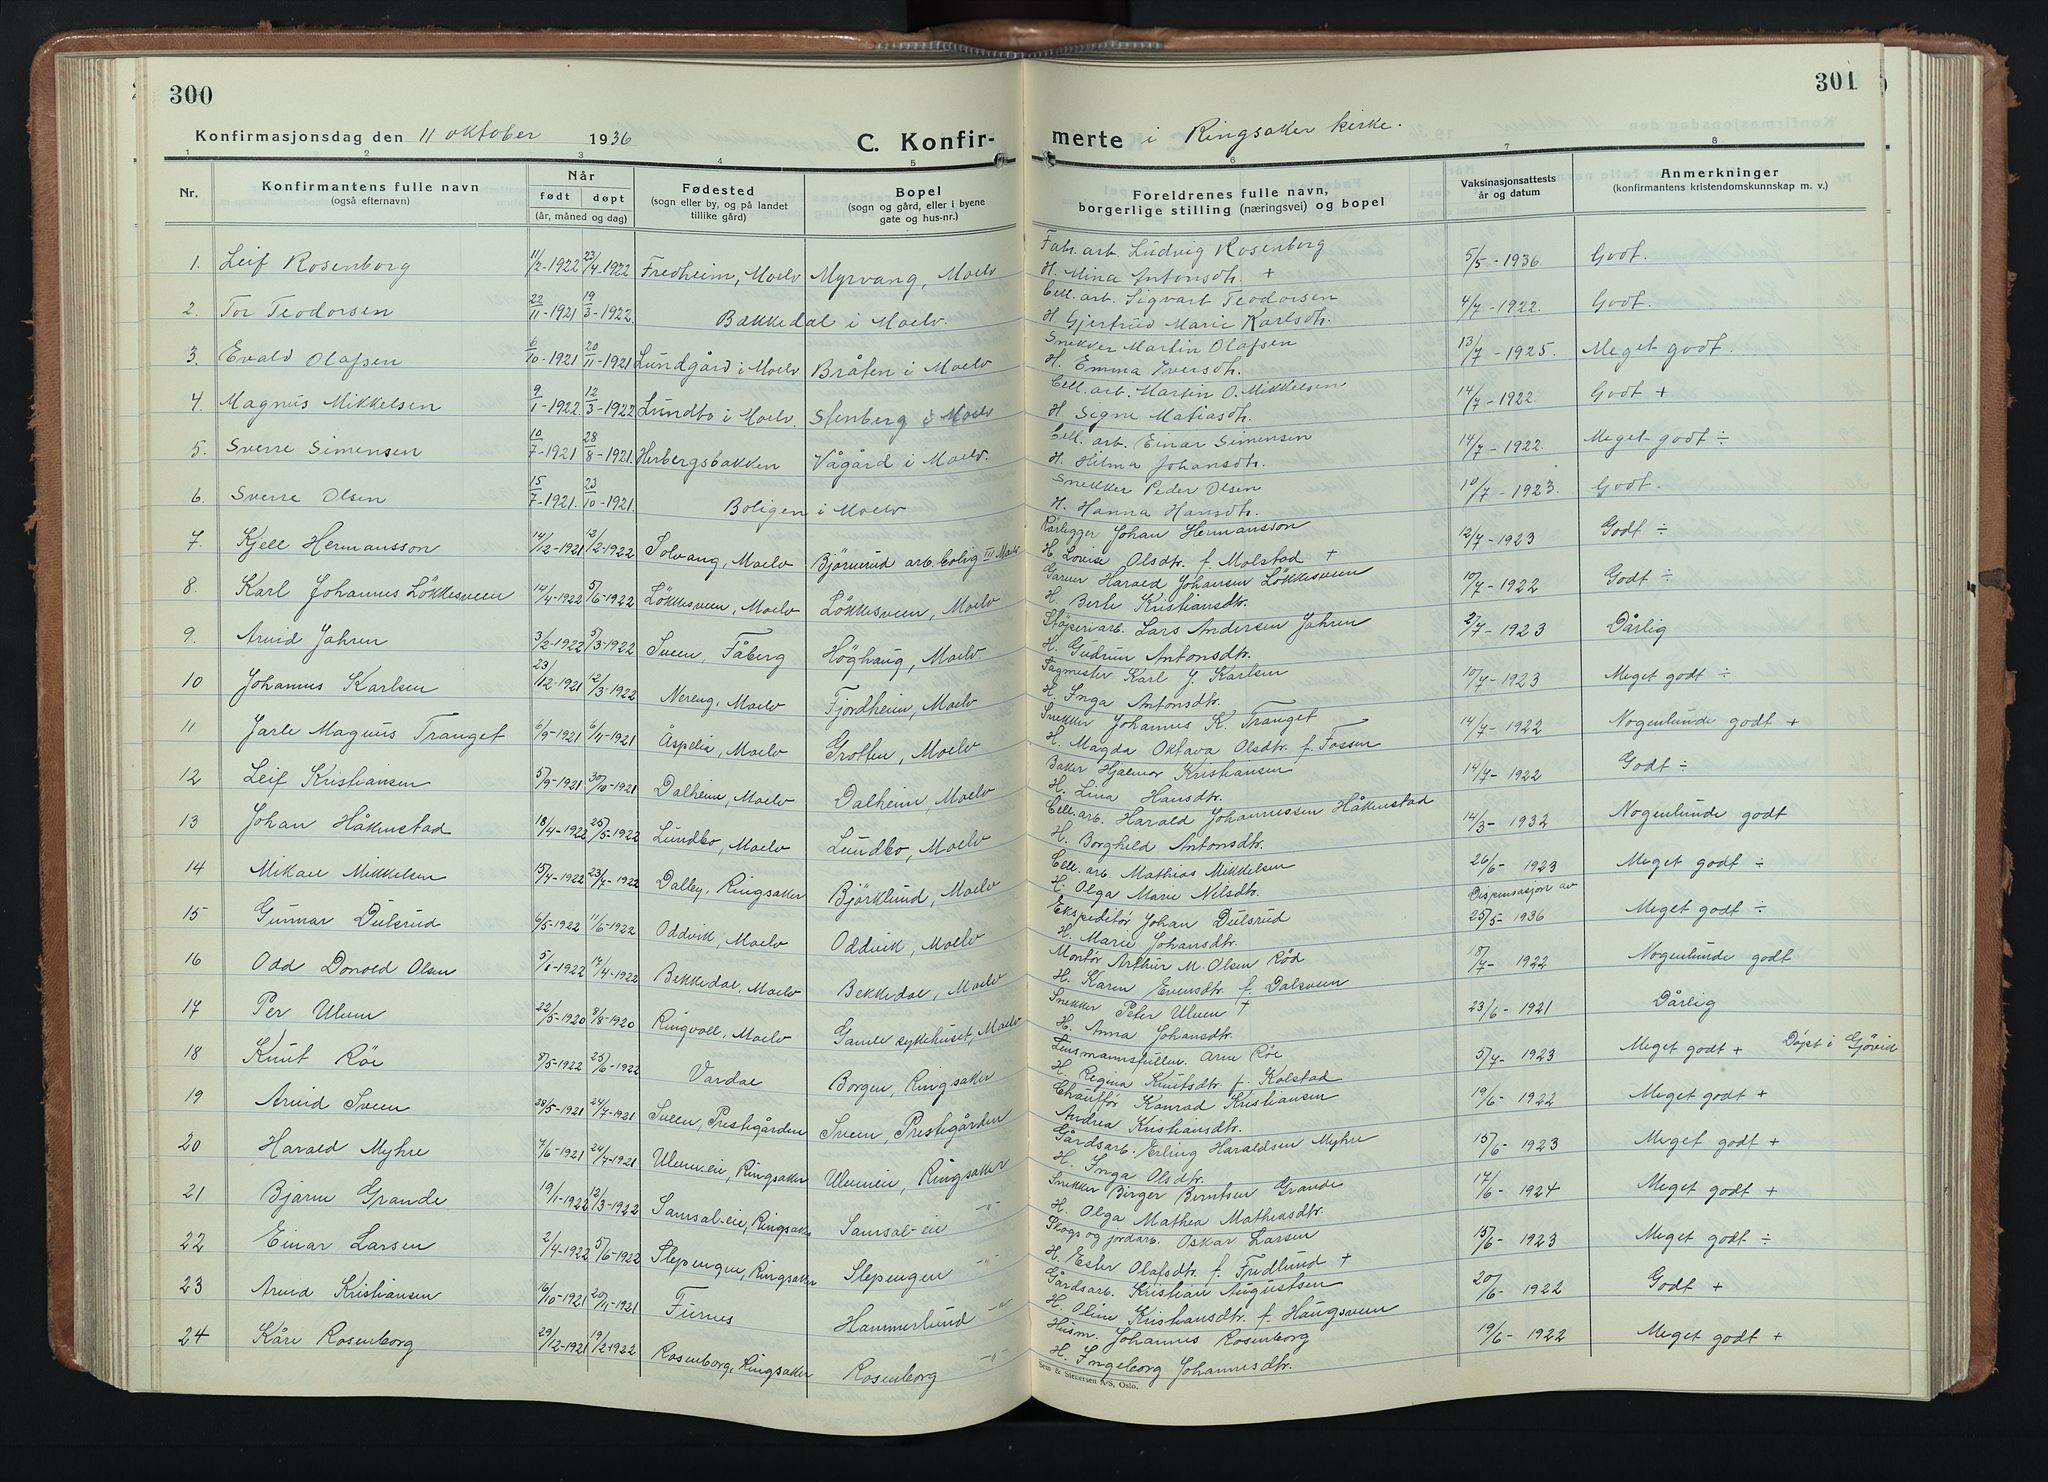 300
301
Konfirmasjonsdag den 11 oktober 1936
C. Konfir-
merte i Ringsaker kirke.
1 2 3 4 5 6 7 8
Nr.
Konfirmantens fulle navn
(også efternavn)
Når
født døpt
(år, måned og dag)
Fødested
(sogn eller by, og på landet
tillike gård)
Bopel
(sogn og gård, eller i byene
gate og hus-nr.)
Foreldrenes fulle navn,
borgerlige stilling (næringsvei) og bopel
Vaksinasjonsattests
år og datum
Anmerkninger
(konfirmantens kristendomskunnskap m. v.)
1. Leif Rosenborg 11/2-1922 23/4-1922 Fredheim, Moelv Myrvang, Moelv Fabr. arb. Ludvig Rosenborg 5/5-1936. Godt.
H. Mina Antonsdtr. +
2. Tor Teodorsen 22/11-1921 19/3-1922 Bækkedal i Moelv. Cell. arb. Sigvart Teodorsen 4/7-1922. Godt.
H. Gjertrud Marie Karlsdtr.
3. Evald Olafsen 6/10-1921 20/11-1921 Lundgård i Moelv Bråten i Moelv Snekker Martin Olafsen 13/7-1925. Meget godt.
H. Emma Iversdtr.
4. Magnus Mikkelsen 9/1-1922 12/3-1922 Lundbo i Moelv. Stenberg i Moelv Cell. arb. Martin O. Mikkelsen 14/7-1922. Godt +
H. Signe Matiasdtr.
5. Sverre Simensen 10/7-1921 28/8-1921 Herbergsbakken Vågård i Moelv. Cell. arb. Einar Simensen 14/7-1922. Meget godt ÷
H. Hilma Johansdtr.
6. Sverre Olsen 15/7-1921 23/10-1921 Boligen i Moelv Snekker Peder Olsen 10/7-1923. Godt.
H. Hanna Hansdtr.
7. Kjell Hermansson 14/2-1921 12/2-1922 Solvang, Moelv Bjørnerud arb. bolig III Moelv Rørlegger Johan Hermansson 12/7-1923 Godt ÷
H. Lovise Olsdtr. f. Molstad +
8. Karl Johannes Løkkesveen 14/4-1922 5/6-1922 Løkkesveen, Moelv Løkkesveen, Moelv Garver Harald Johansen Løkkesveen 10/7-1922 Godt ÷
H. Berte Kristiansdtr.
9. Arvid Jahren 3/2-1922 5/3-1922 Sveen, Fåberg Høghaug, Moelv. Støperiarb. Lars Andersen Jahren 2/7-1923 Dårlig
H. Gudrun Antonsdtr.
10 Johannes Karlsen 23/12-1921 12/3-1922 Nereng, Moelv Fjordheim, Moelv Fagmester Karl J. Karlsen 10/7-1923 Meget godt ÷
H. Inga Antonsdtr.
11 Jarle Magnus Tranget 6/9-1921 6/11-1921 Åspelia, Moelv Grotten, Moelv Snekker Johannes K. Tranget 14/7-1922 Nogenlunde godt +
H. Magda Oktava Olsdtr. f. Fossen
12 Leif Kristiansen 5/9-1921 30/10-1921 Dalheim, Moelv Dalheim, Moelv Baker Hjalmar Kristiansen 14/7-1922 Godt ÷
H. Lina Hansdtr.
13 Johan Håkenstad 18/4-1922 25/5-1922 Lundbo, Moelv Lundbo, Moelv Cell. arb. Harald Johannessen Håkenstad 14/3-1932 Nogenlunde godt
H. Borghild Antonsdtr.
14 Mikael Mikkelsen 15/4-1922 23/7-1922 Dalley, Ringsaker Bjørklund, Moelv Cell. arb. Mathias Mikkelsen 26/6-1923 Meget godt ÷
H. Olga Marie Nelsdtr. Dispensasjon av
15 Gunnar Dulsrud 6/5-1922 11/6-1922 Oddvik, Moelv Oddvik, Moelv Ekspeditør Johan Dulsrud 25/5-1936 Meget godt ÷
H. Marie Johansdtr.
16 Odd Donald Olsen 5/1-1922 17/4-1922 Bekkedal, Moelv Bekkedal, Moelv Montør Arthur M. Olsen Rød 18/7-1922 Nogenlunde godt
H. Karen Evensdtr. f. Dalsveen
17 Per Ulven 22/5-1920 8/8-1920 Ringvoll, Moelv Gamle sykehuset, Moelv Snekker Peter Ulven + 23/6-1921 Dårlig
H. Anna Johansdtr.
18 Knut Røe 8/5-1922 25/6-1922 Vardal Borgen, Ringsaker Lensmannsfullm. Arne Røe 5/7-1923 Meget godt + Døpt i Gjøvik
H. Regina Knutsdtr. f. Kolstad
19 Arvid Sveen 28/5-1921 24/7-1921 Sveen, Prestegården Sveen, Prestegården Chauffør Konrad Kristiansen 19/6-1922 Meget godt +
Andrea Kristiansdtr.
20 Harald Myhre 7/6-1921 24/7-1921 Ulven-eie, Ringsaker Ulveneie, Ringsaker Gårdsarb. Erling Haraldsen Myhre 15/6-1923 Meget godt +
H. Inga Olsdtr.
21 Bjarne Grande 19/1-1922 12/3-1922 Samsal-eie, Ringsaker Samsal-eie -"- Snekker Birger Berntsen Grande 17/6-1924 Meget godt +
H. Olga Mathea Matheusdtr.
22 Einar Larsen 2/4-1922 5/6-1922 Slepengen, Ringsaker Slepengen -"- Skogs og jordarb. Oskar Larsen 15/6-1923 Meget godt ÷
H. Ester Olafsdtr. f. Fredlund +
23 Arvid Kristiansen 16/10-1921 20/11-1921 Furnes Hammerlund -"- Gårdsarb. Kristian Augustsen 20/6-1922 Godt +
H. Oline Kristiansdtr. f. Haugsveen
24 Kåre Rosenborg 29/12-1921 19/2-1922 Rosenborg, Ringsaker Rosenborg -"- Husm. Johannes Rosenborg 19/6-1922 Meget godt +
H. Ingeborg Johannesdtr.
Sem & Stenersen A/S, Oslo.